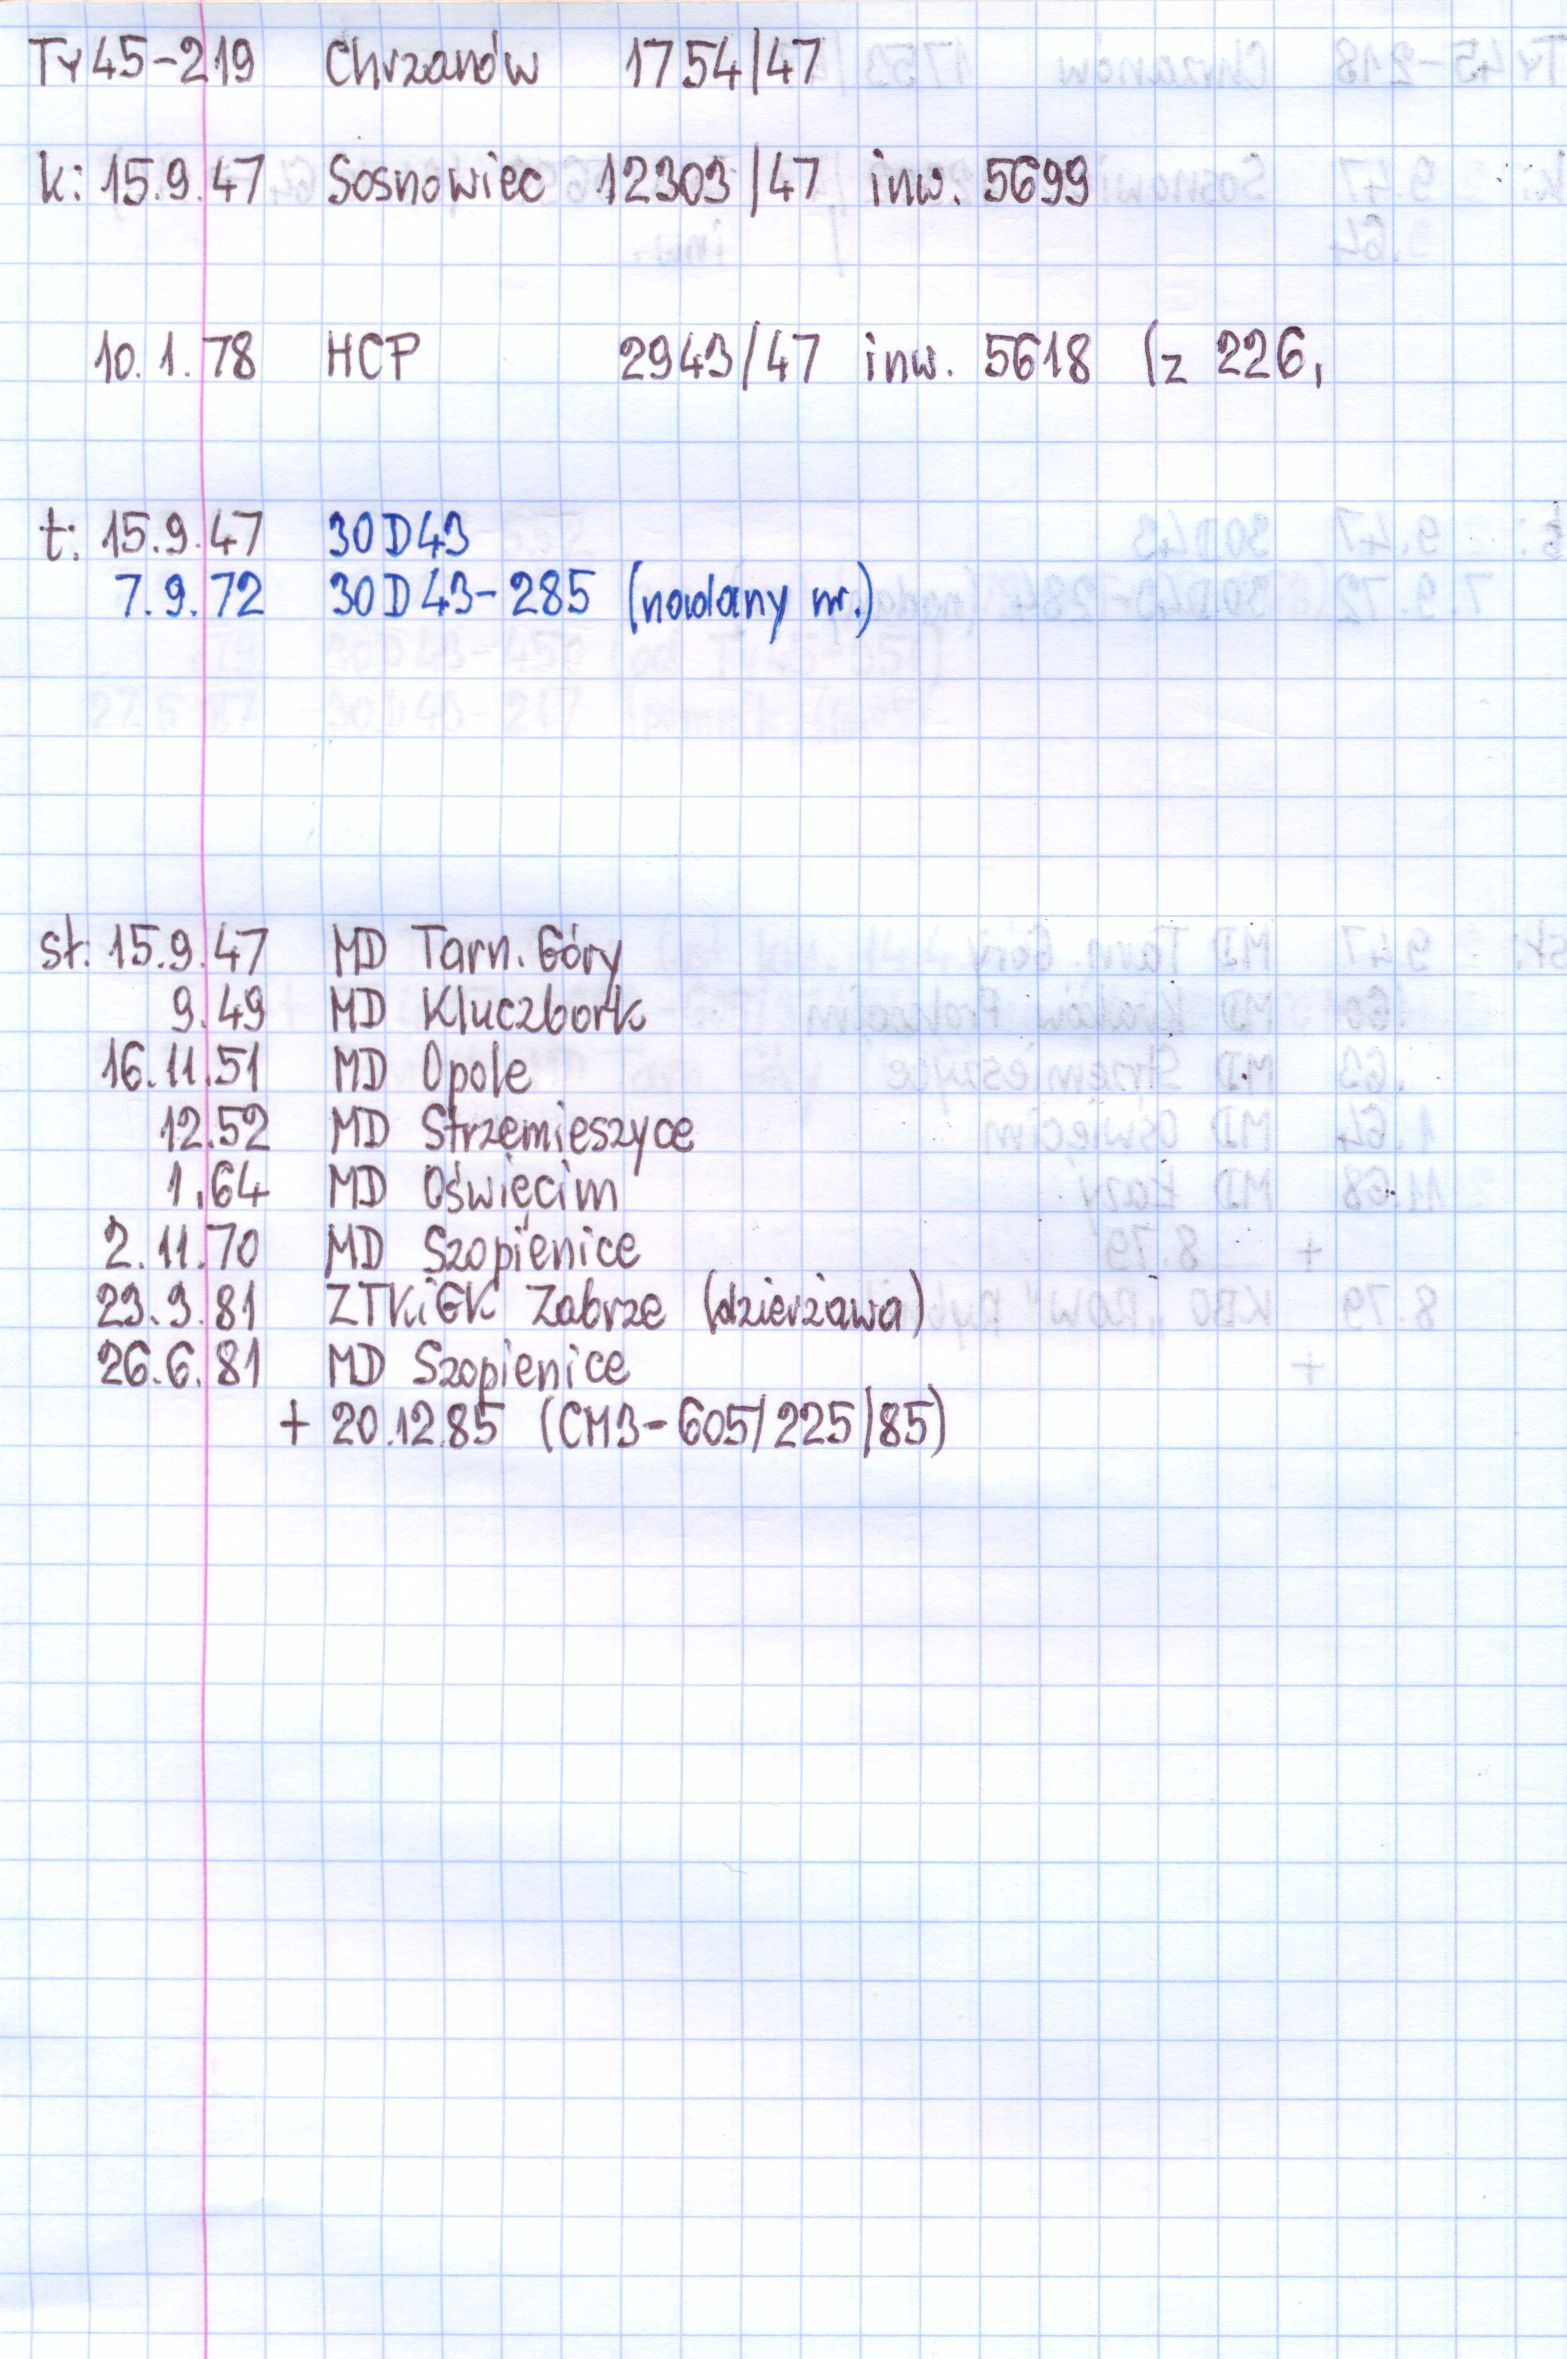 Ty45-219 Chrzanów 1754/47
k: 15.9.47 Sosnowiec 12303/47 inw. 5699
10.1.78 HCP 2943/47 inw. 5618 (z 226,
t: 15.9.47 30D43
7.9.72 30D43-285 (nadany nr.)
st: 15.9.47 MD Tarn. Góry
9.49 MD Kluczbork
16.11.51 MD Opole
12.52 MD Strzemieszyce
1.64 MD Oświęcim
2.11.70 MD Szopienice
23.3.81 ZTKiGK Zabrze (dzierżawa)
26.6.81 MD Szopienice
+ 20.12.85 (CM3-605/225/85)